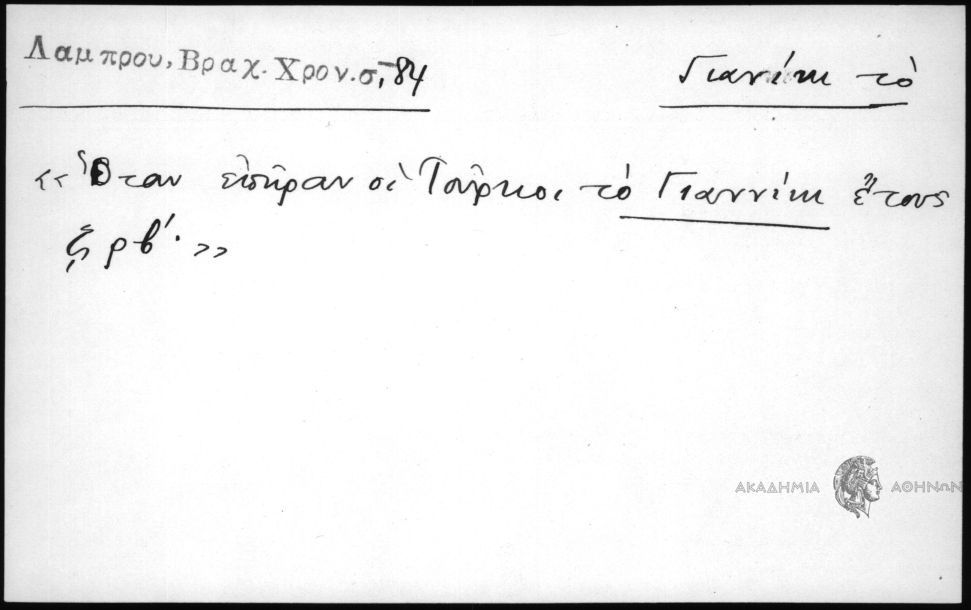 Λαμπρου, Βραχ. Χρον. σ, 84
Γιανίκι τὸ
«Ὅταν ἐπῆραν οἱ Τοῦρκοι τὸ Γιαννίκι ἔτους
ζ̅ρβʹ.»
ΑΚΑΔΗΜΙΑ ΑΘΗΝΩΝ